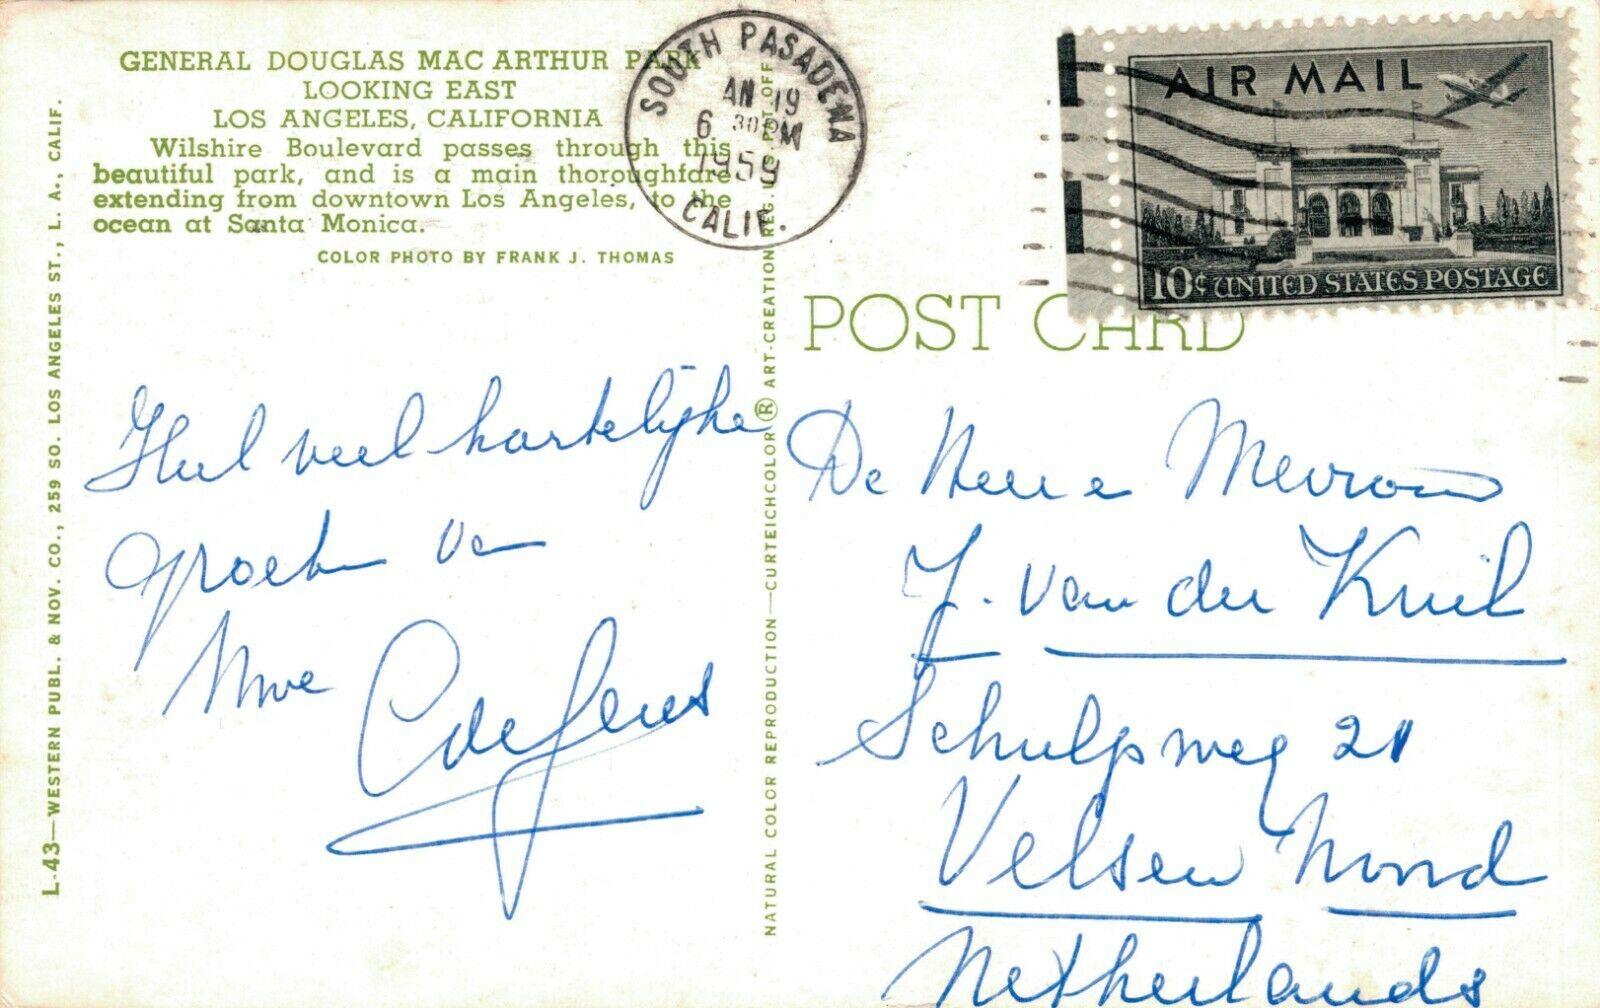 GENERAL DOUGLAS MAC ARTHUR PARK
LOOKING EAST
LOS ANGELES, CALIFORNIA
Wilshire Boulevard passes through this
beautiful park, and is a main thoroughfare
extending from downtown Los Angeles, to the
ocean at Santa Monica.
COLOR PHOTO BY FRANK J. THOMAS
L-43—WESTERN PUBL. & NOV. CO., 259 SO. LOS ANGELES ST., L. A., CALIF.
Heel veel hartelijke
groeten van
Mve
NATURAL COLOR REPRODUCTION—CURTEICHCOLOR® ART-CREATION REG. U.S. PAT. OFF
SOUTH PASADENA
AN 19
6 30 PM
1959
CALIF.
AIR MAIL
10¢ UNITED STATES POSTAGE
POST CARD
De Heer e Mevrouw
J. van der Kuil
Schulpweg 21
Velsen Noord
Netherlands